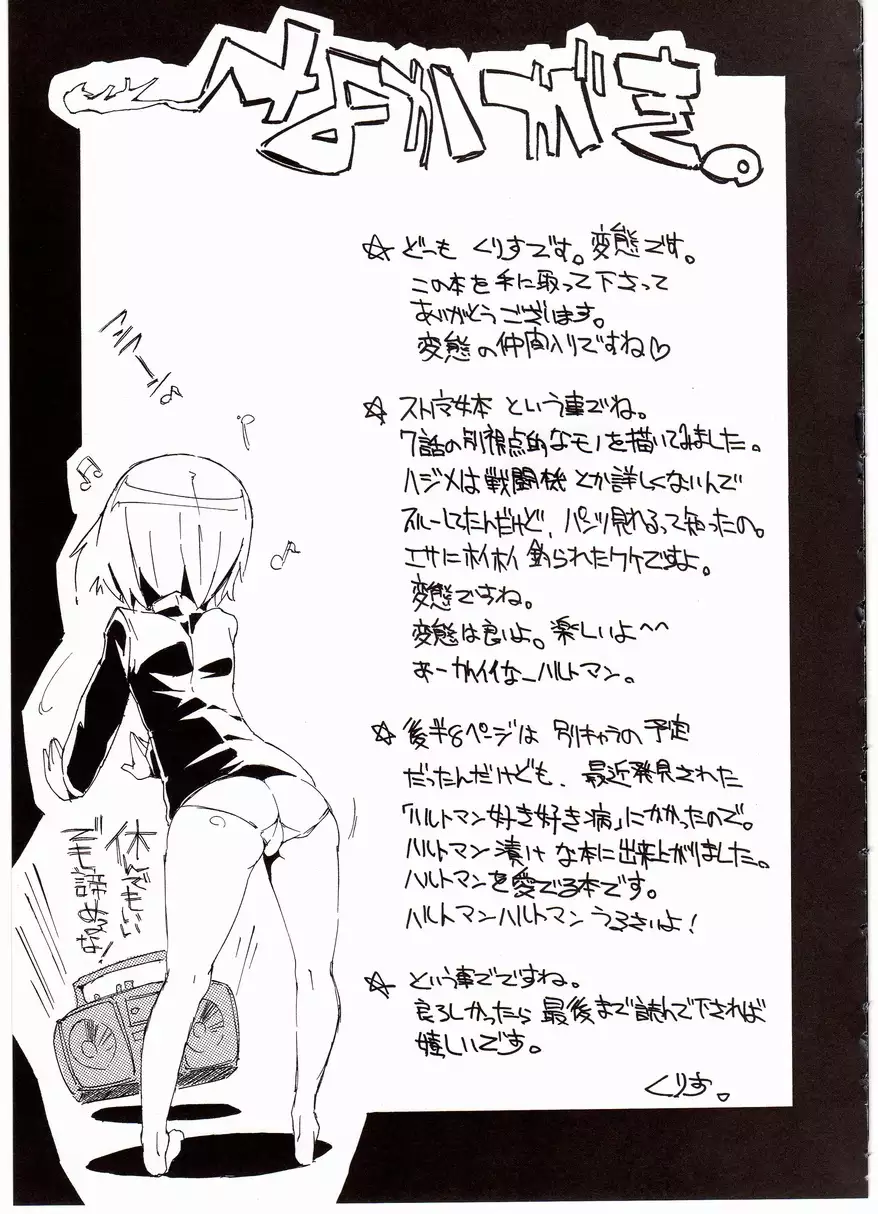 まえがき。
☆ どーも くりすです。変態です。
この本を手に取って下さって
ありがとうございます。
変態の仲間入りですね♡
☆ ストパン本 という事でね。
7話の別視点的なモノを描いてみました。
ハジメは戦闘機とか詳しくないんで
スルーしてたんだけど、パンツ見れるって知ったの。
エサにホイホイ釣られたワケですよ。
変態ですね。
変態は良いよ。楽しいよ〜〜
あーかわイイなーハルトマン。
☆ 後半8ページは 別キャラの予定
だったんだけども、最近発見された
「ハルトマン好き好き病」にかかったので。
ハルトマン漬けな本に出来上がりました。
ハルトマンを愛でる本です。
ハルトマンハルトマンうるさいよ!
☆ という事でですね。
良ろしかったら最後まで読んで下されば
嬉しいです。
くりす。
休んでもいい
でも諦めんな!